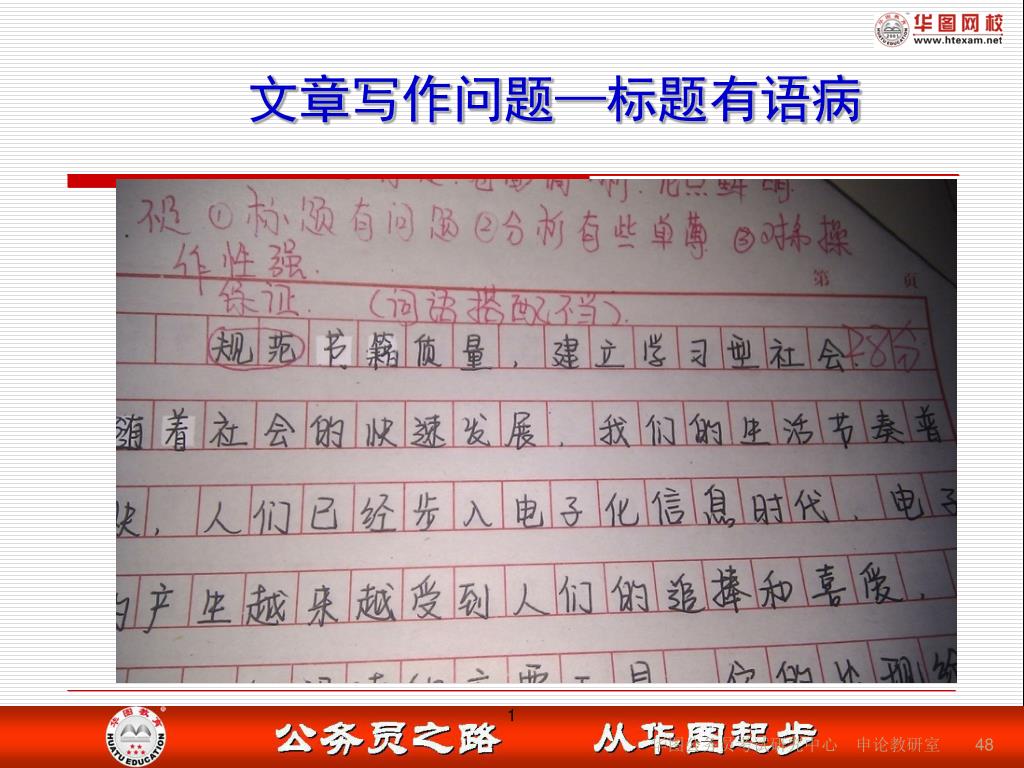 华图网校
www.htexam.net
文章写作问题—标题有语病
①标题有问题②分析有些单薄③对和操
作性强.
第 页
保证. (词语搭配不当).
规范书籍质量,建立学习型社会 28分
随着社会的快速发展,我们的生活节奏普
快,人们已经步入电子化信息时代,电子
的产生越来越受到人们的追捧和喜爱,
1
华图教育
HUATU EDUCATION
公务员之路 从华图起步
华图公务员考试研究中心 申论教研室 48